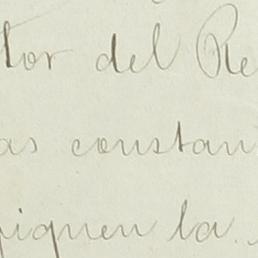 tor del Re
as constan
iquen la